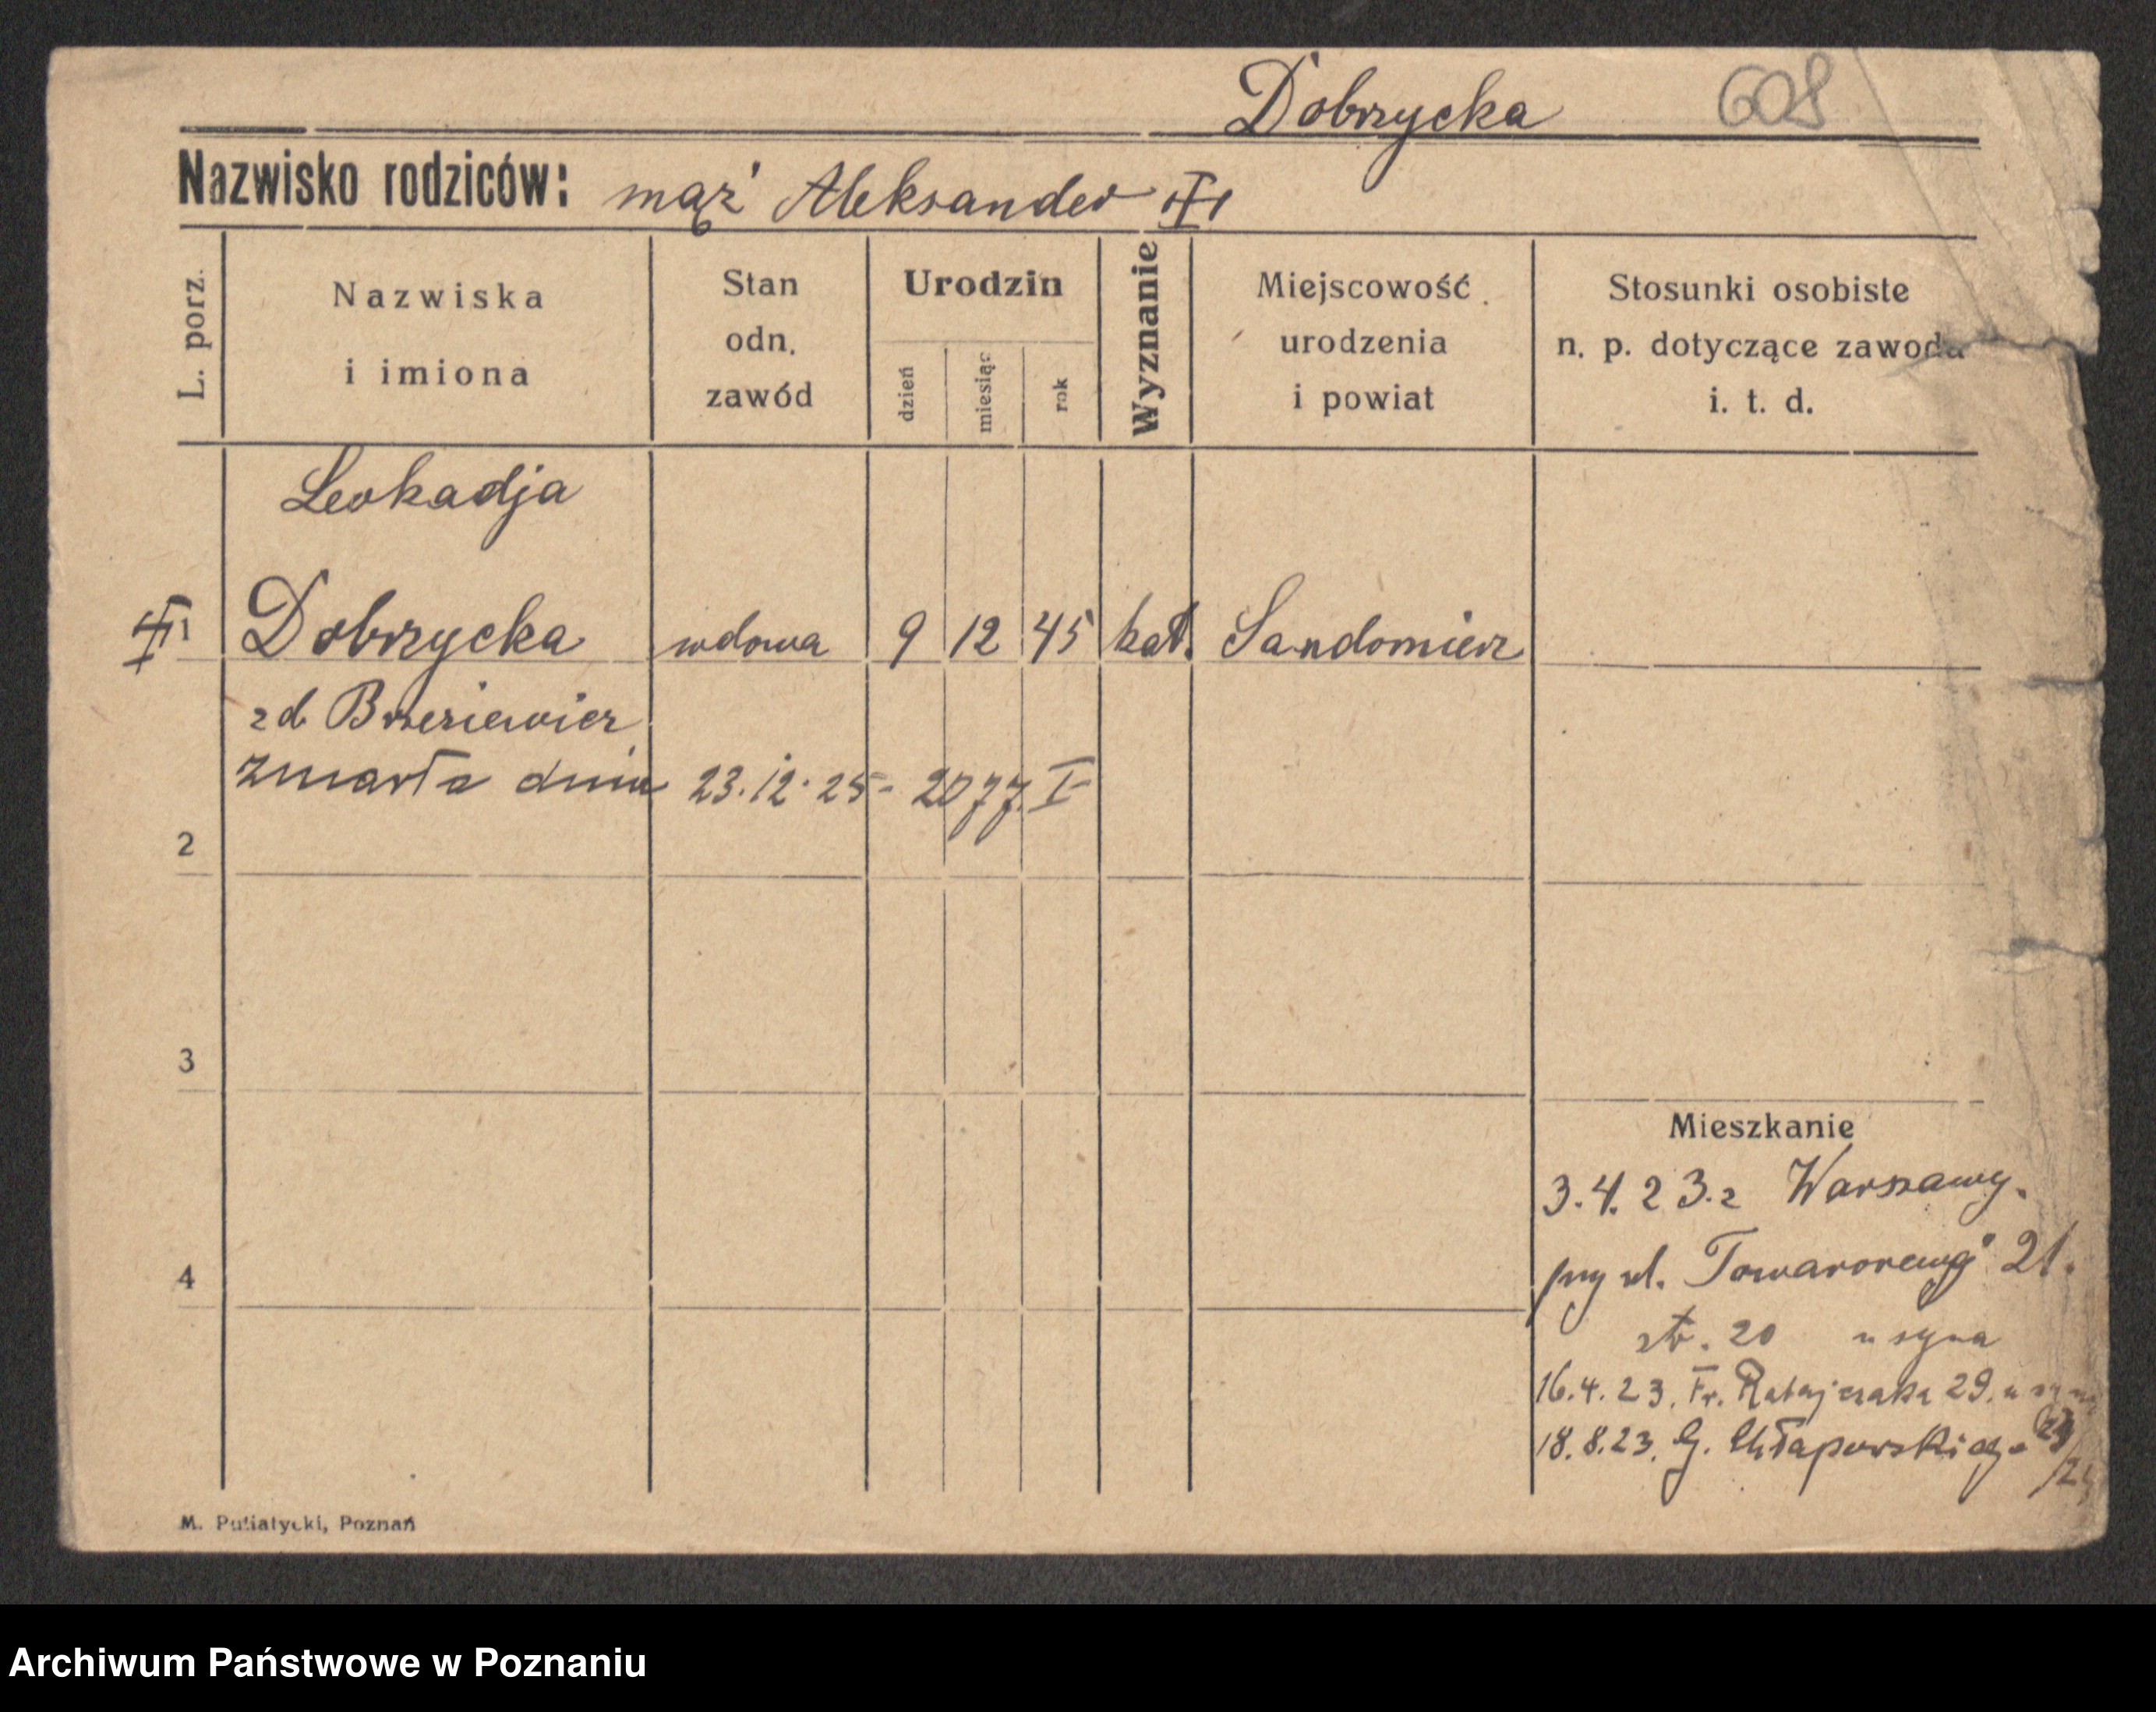 Dobrzycka 608
Nazwisko rodziców: mąż Aleksander
L. porz.
Nazwiska
i imiona
Stan
odn.
zawód
Urodzin
dzień
miesiąc
rok
Wyznanie
Miejscowość
urodzenia
i powiat
Stosunki osobiste
n. p. dotyczące zawodu
i. t. d.
Leokadja
1 Dobrzycka wdowa 9 12 45 kat. Sandomierz
zd Brzeziewicz
zmarła dnia 23.12.25 - 2077. I
2
3
Mieszkanie
3.4.23. z Warszawy.
4
przy ul. Towarowej 21.
str. 20 u syna
16.4.23. Fr. Ratajczaka 29. u syna
18.8.23. G. Chłapowskiego
M. Putiatycki, Poznań
Archiwum Państwowe w Poznaniu